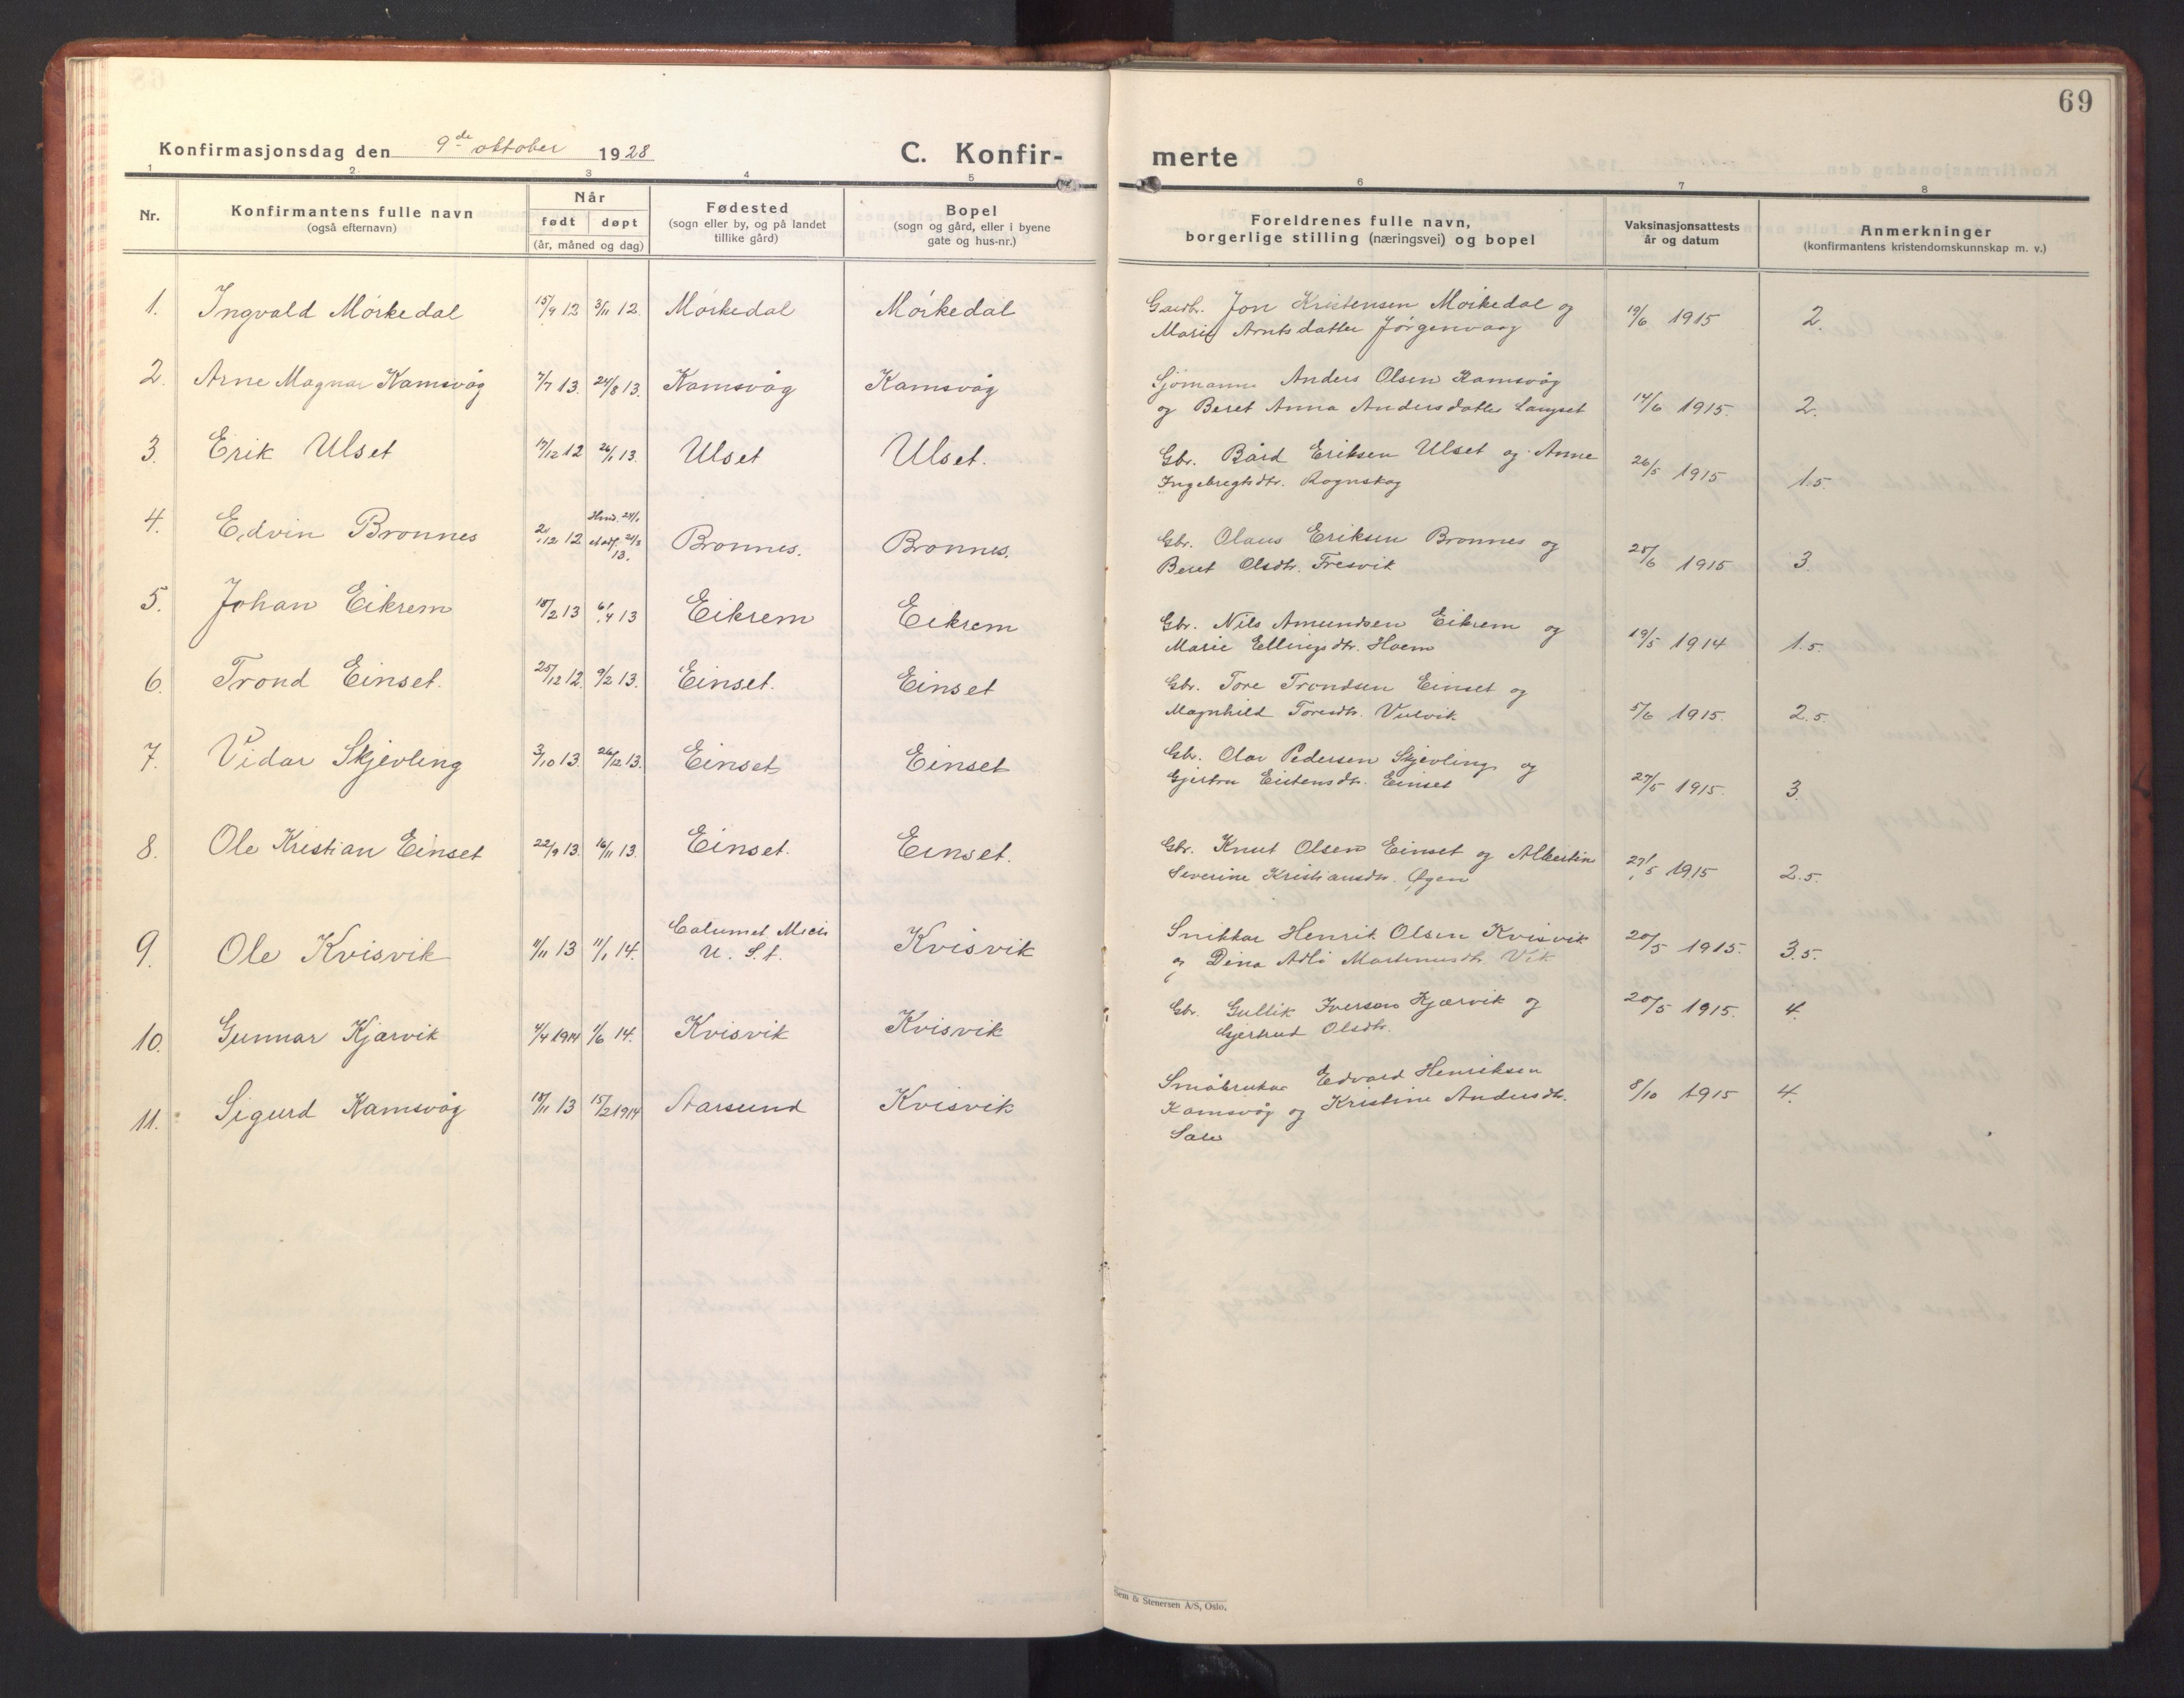 69
Konfirmasjonsdag den 9de oktober 1928
C. Konfir-
merte
1 2 3 4 5 6 7 8
Nr.
Konfirmantens fulle navn
(også efternavn)
Når
født døpt
(år, måned og dag)
Fødested
(sogn eller by, og på landet
tillike gård)
Bopel
(sogn og gård, eller i byene
gate og hus-nr.)
Foreldrenes fulle navn,
borgerlige stilling (næringsvei) og bopel
Vaksinasjonsattests
år og datum
Anmerkninger
(konfirmantens kristendomskunnskap m. v.)
1. Ingvald Mörkedal 15/9 12 3/11 12. Mörkedal Mörkedal
Gardbr. Jon Kristensen Mörkedal og
Marie Arntsdatter Jörgenvaag
19/6 1915 2.
2. Arne Magnar Kamsvåg 7/7 13. 24/8 13. Kamsvåg Kamsvåg
Sjömann Anders Olsen Kamsvåg
og Beret Anna Andersdatter Langset
14/6 1915. 2.
3. Erik Ulset 17/12 12 26/1 13. Ulset Ulset.
Gbr. Bård Eriksen Ulset og Anne
Ingebregtsdtr. Rognskog
26/5 1915 1.5.
4. Edvin Bronnes 2/12 12 24/1 24/3 13. Bronnes. Bronnes.
Gbr. Olaus Eriksen Bronnes og
Beret Olsdtr. Fresvik
25/6 1915 3.
5. Johan Eikrem 18/2 13 6/4 13 Eikrem Eikrem
Gbr. Nils Amundsen Eikrem og
Marie Ellingsdtr. Hoem
19/5 1914 1.5.
6. Trond Einset. 25/12 12. 9/2 13. Einset. Einset
Gbr. Tore Trondsen Einset og
Magnhild Toresdtr. Vulvik
5/6 1915. 2.5.
7. Vidar Skjevling 3/10 13. 26/12 13. Einset Einset
Gbr. Olav Pedersen Skjevling og
Gjertru Eistensdtr. Einset
27/5 1915. 3.
8. Ole Kristian Einset 22/9 13. 16/11 13. Einset. Einset.
Gbr. Knut Olsen Einset og Albertine
Severine Kristiansdtr. Øgen
27/5 1915 2.5.
9. Ole Kvisvik 4/11 13 11/1 14. Calumet Mich U. S. t. Kvisvik
Snikkar Henrik Olsen Kvisvik
og Dina Adli Martinusdtr. Vik
20/5 1915. 3.5.
10. Gunnar Kjærvik 4/4 1914 1/6 14. Kvisvik Kvisvik
Gbr. Gullik Iversen Kjærvik og
Gjertrud Olsdtr.
20/5 1915. 4.
11. Sigurd Kamsvåg 18/11 13 15/2 1914 Aarsund Kvisvik
Småbrukar Edvard Henriksen
Kamsvåg og Kristine Andersdtr.
8/10 1915 4.
Sem & Stenersen A/S, Oslo.